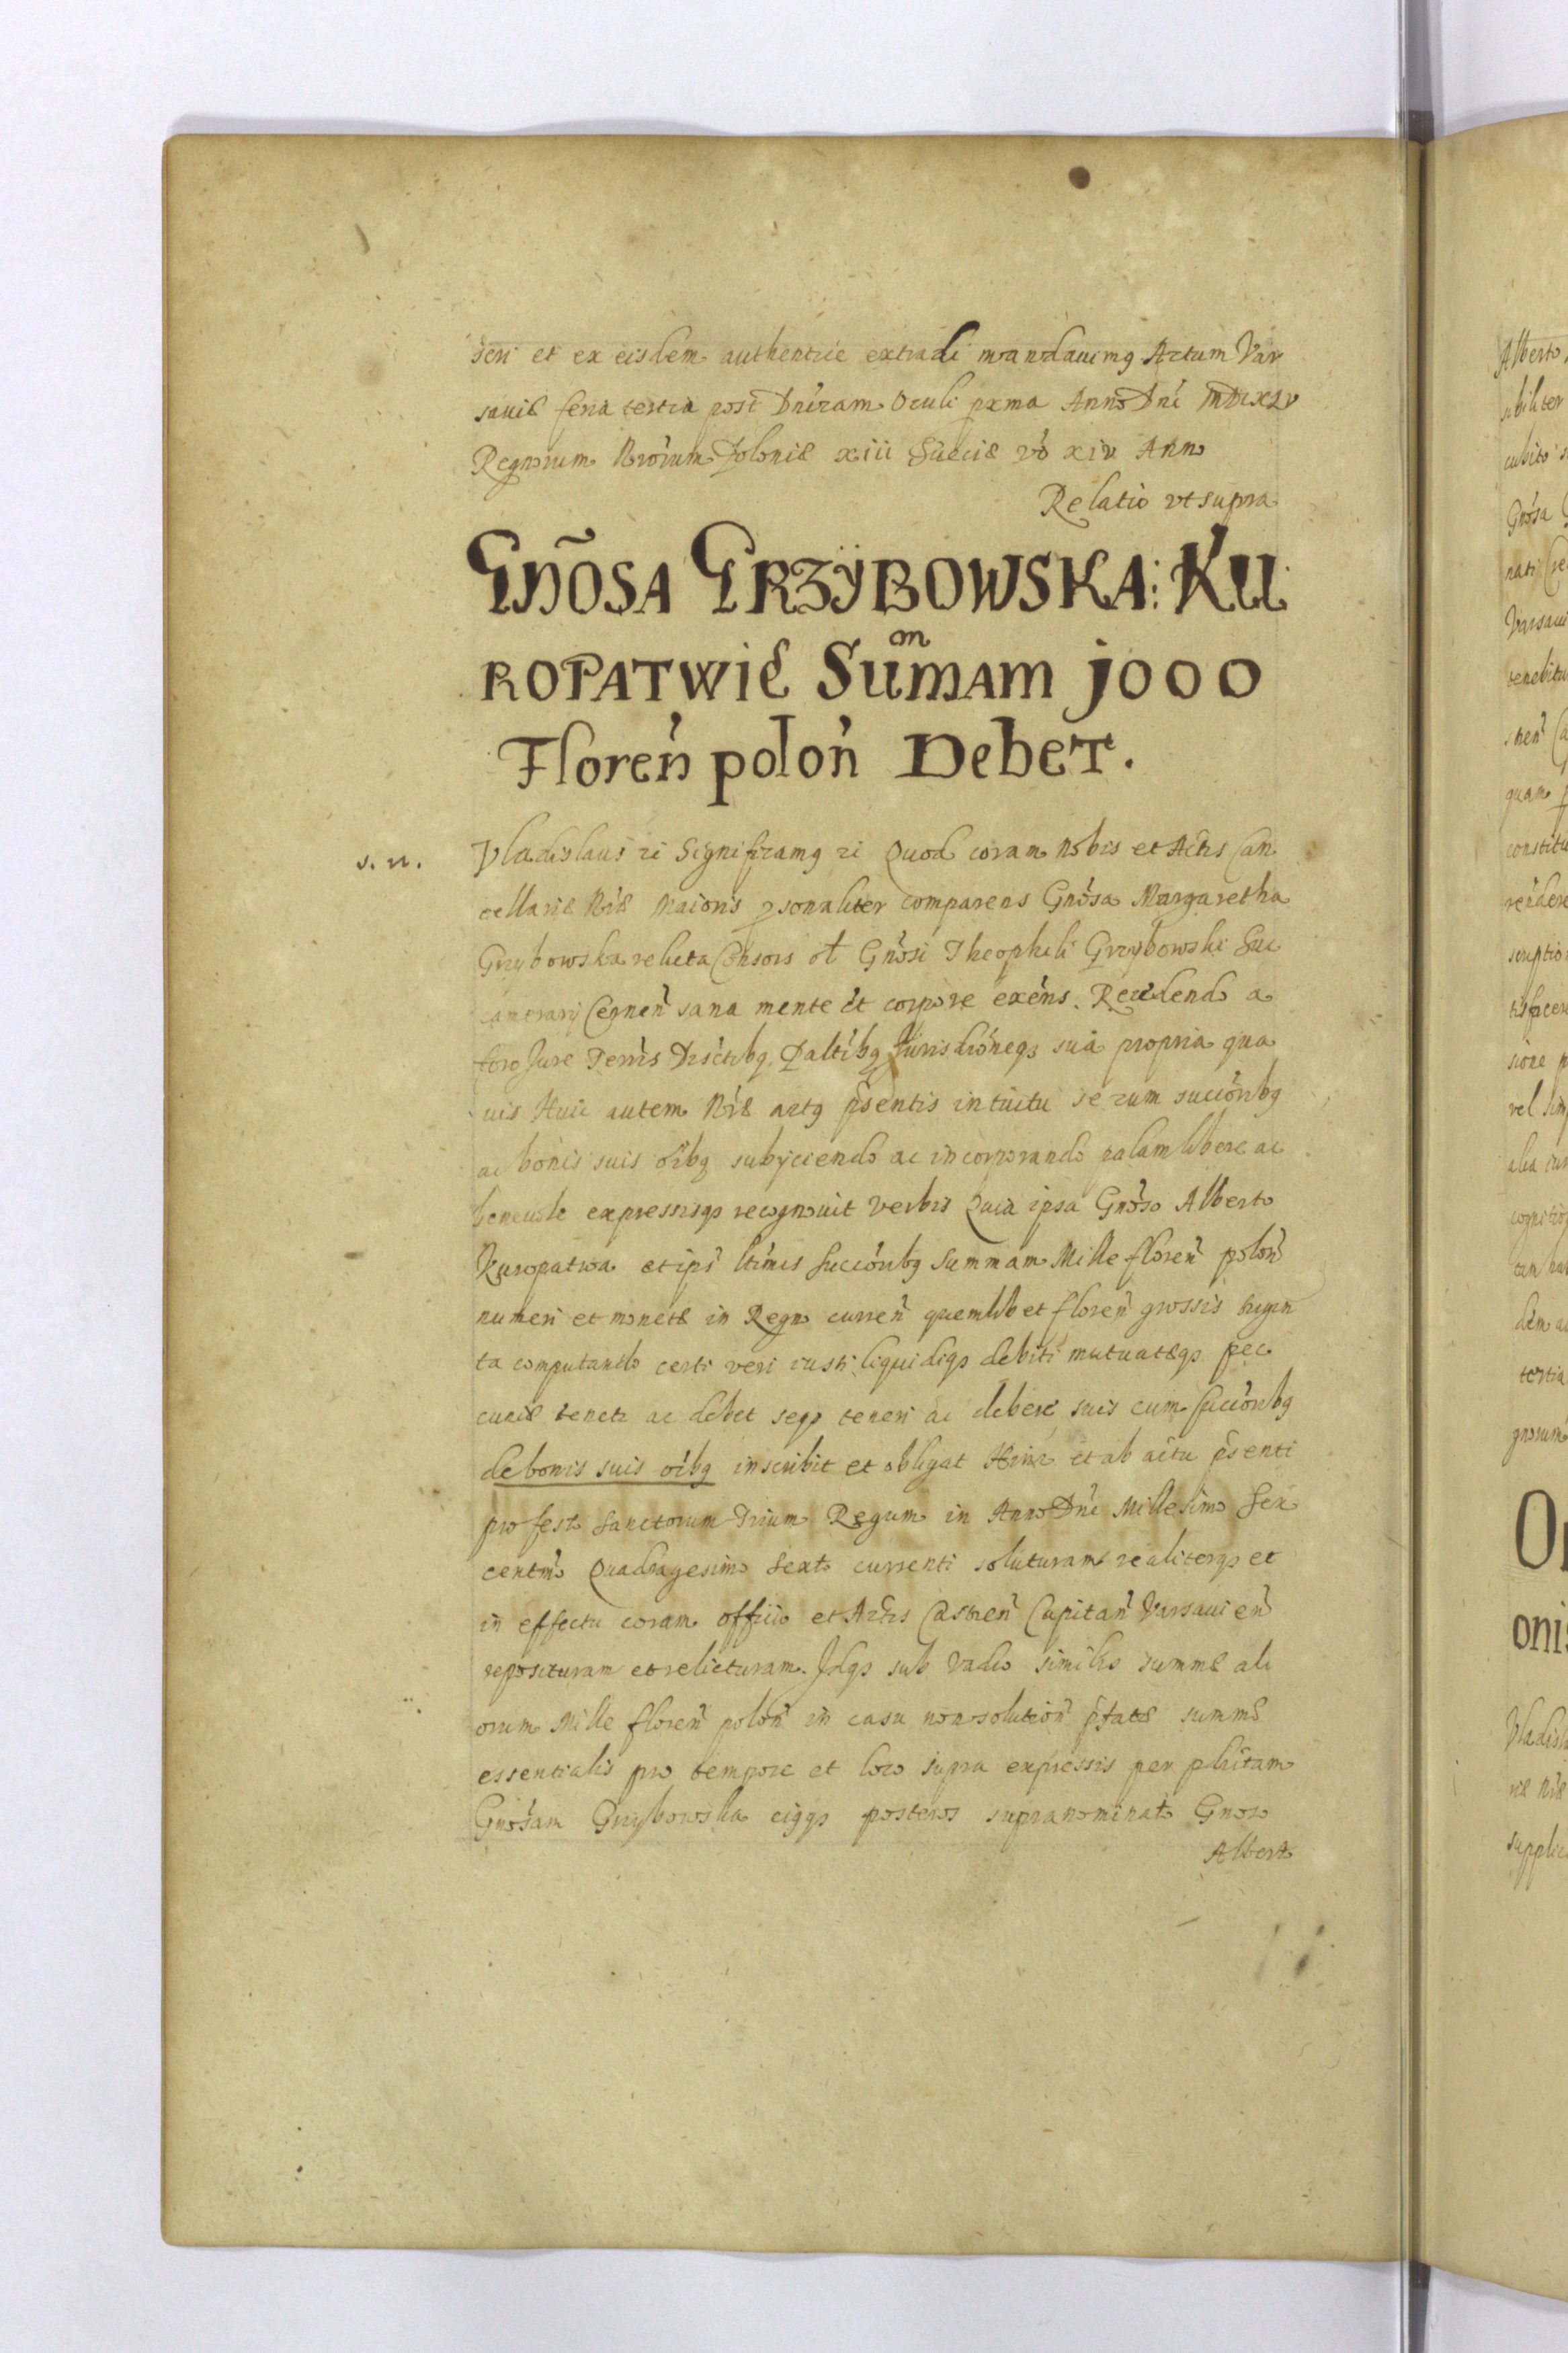 seri et ex eisdem authentice extradi mandauimq Actum Var
sauiē feria tertia post Dnicam Oculi pxma Anno Dni MDCXLV
Regnorum Nrorum Poloniē xiii Sueciē vo xiv Anno
Relatio vt supra
GNOSA GRZŸBOWSKA: KU
ROPATWIE SUMMAM 1000
Floren̄ polon̄ DebeT.
s. n.
Vladislaus zc Significamq zc Quod coram Nobis et Actis Can
cellariē Nrē Maioris psonaliter comparens Gnosa Margaretha
Grzybowska relicta Consors ol Gnosi Theophili Grzybowski Suc
camerarij Cernen̄ sana mente et corpore exens. Recedendo a
foro Jure Terris Disctibq Paltibq Jurisdioneqз sua propria qua
uis Huic autem Nrē actq psentis intuitu se cum succoribq
ac bonis suis oibq subijciendo ac incorporando palam libere ac
beneuole expressisqз recognouit verbis Quia ipsa Gnoso Alberto
Kuropatwa et ips ltimis succoribq Summam Mille floren̄ polon̄
numeri et monetē in Regno curren̄ quemlibet floren̄ grossis trigin
ta computando certi veri iusti liquidiqз debiti mutuatēqз pec
cuniē tenetr ac debet seqз teneri ac debere suis cum succoribq
de bonis suis oibq inscribit et obligat Hinc et ab actu psenti
pro festo Sanctorum Trium Regum in Anno Dni Millesimo Sex
centmo Quadragesimo Sexto currenti soluturam realiterqз et
in effectu coram officio et Actis Castren̄ Capitan̄ Varsauien̄
reposituram et relicturam. Idqз sub vadio similis summē ali
orum Mille floren̄ polon̄ in casu non solution̄ pfatē summē
essentialis pro tempore et loco supra expressis per plritam
Gnosam Grzybowska eiqqз posteros supranominato Gnoso
Alberto